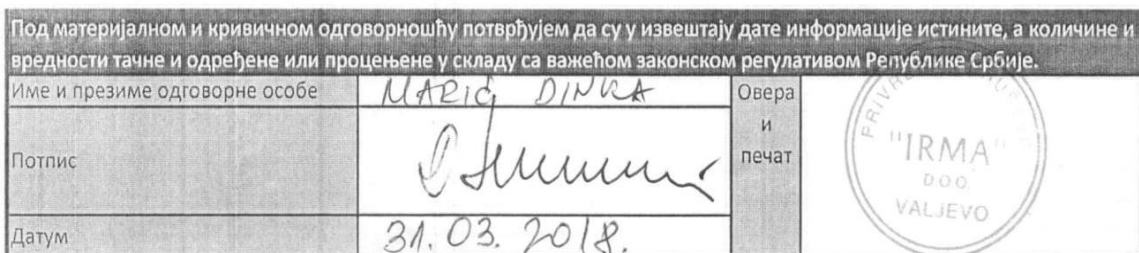 Под материјалном и кривичном одговорношћу потврђујем да су у извештају дате информације истините, а количине и
вредности тачне и одређене или процењене у складу са важећом законском регулативом Републике Србије.
Име и презиме одговорне особе
MARIĆ DINKA
Потпис
Датум
31. 03. 2018.
Овера
и
печат
"IRMA"
D.O.O.
VALJEVO